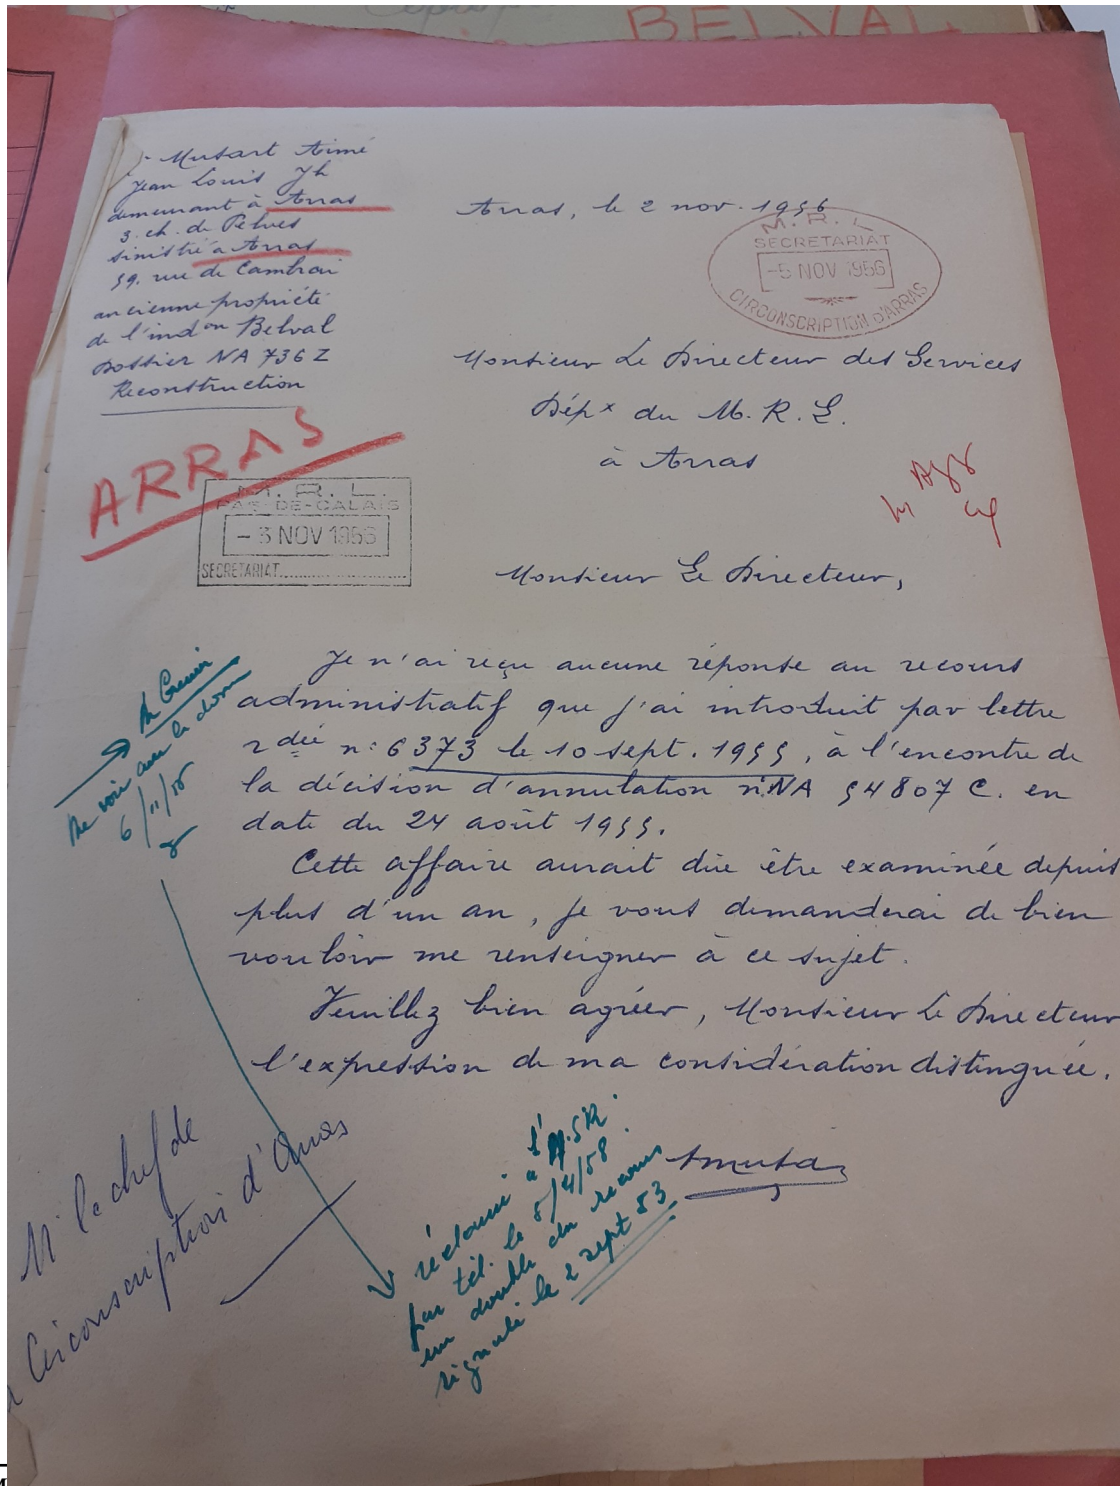 BELVAL
Mutart Aimé
Jean Louis Jh
demeurant à Arras
3. ch. de Pelves
sinistré à Arras
59. rue de Cambrai
ancienne propriété
de l'indon Belval
Dossier NA 736 Z
Reconstruction
Arras, le 2 nov. 1956
M. R. L
SECRETARIAT
-5 NOV 1956
CIRCONSCRIPTION d'ARRAS
Monsieur Le Directeur des Services
Dépx du M. R. L.
à Arras
ARRAS
M. R. L.
PAS-DE-CALAIS
- 3 NOV 1956
SECRETARIAT
Monsieur Le Directeur,
Je n'ai reçu aucune réponse au recours
administratif que j'ai introduit par lettre
rdée n: 6373 le 10 sept. 1955, à l'encontre de
la décision d'annulation n: NA 54807 C. en
date du 24 août 1955.
Cette affaire aurait due être examinée depuis
plus d'un an, je vous demanderai de bien
vouloir me renseigner à ce sujet.
Veuillez bien agréer, Monsieur Le Directeur
l'expression de ma considération distinguée.
me voir avec le
6/11/56
M le chef de
Circonscription d'Arras
réclamé à l'
par tél. le 8/4/58
un double du recours
signalé le 2 sept 53